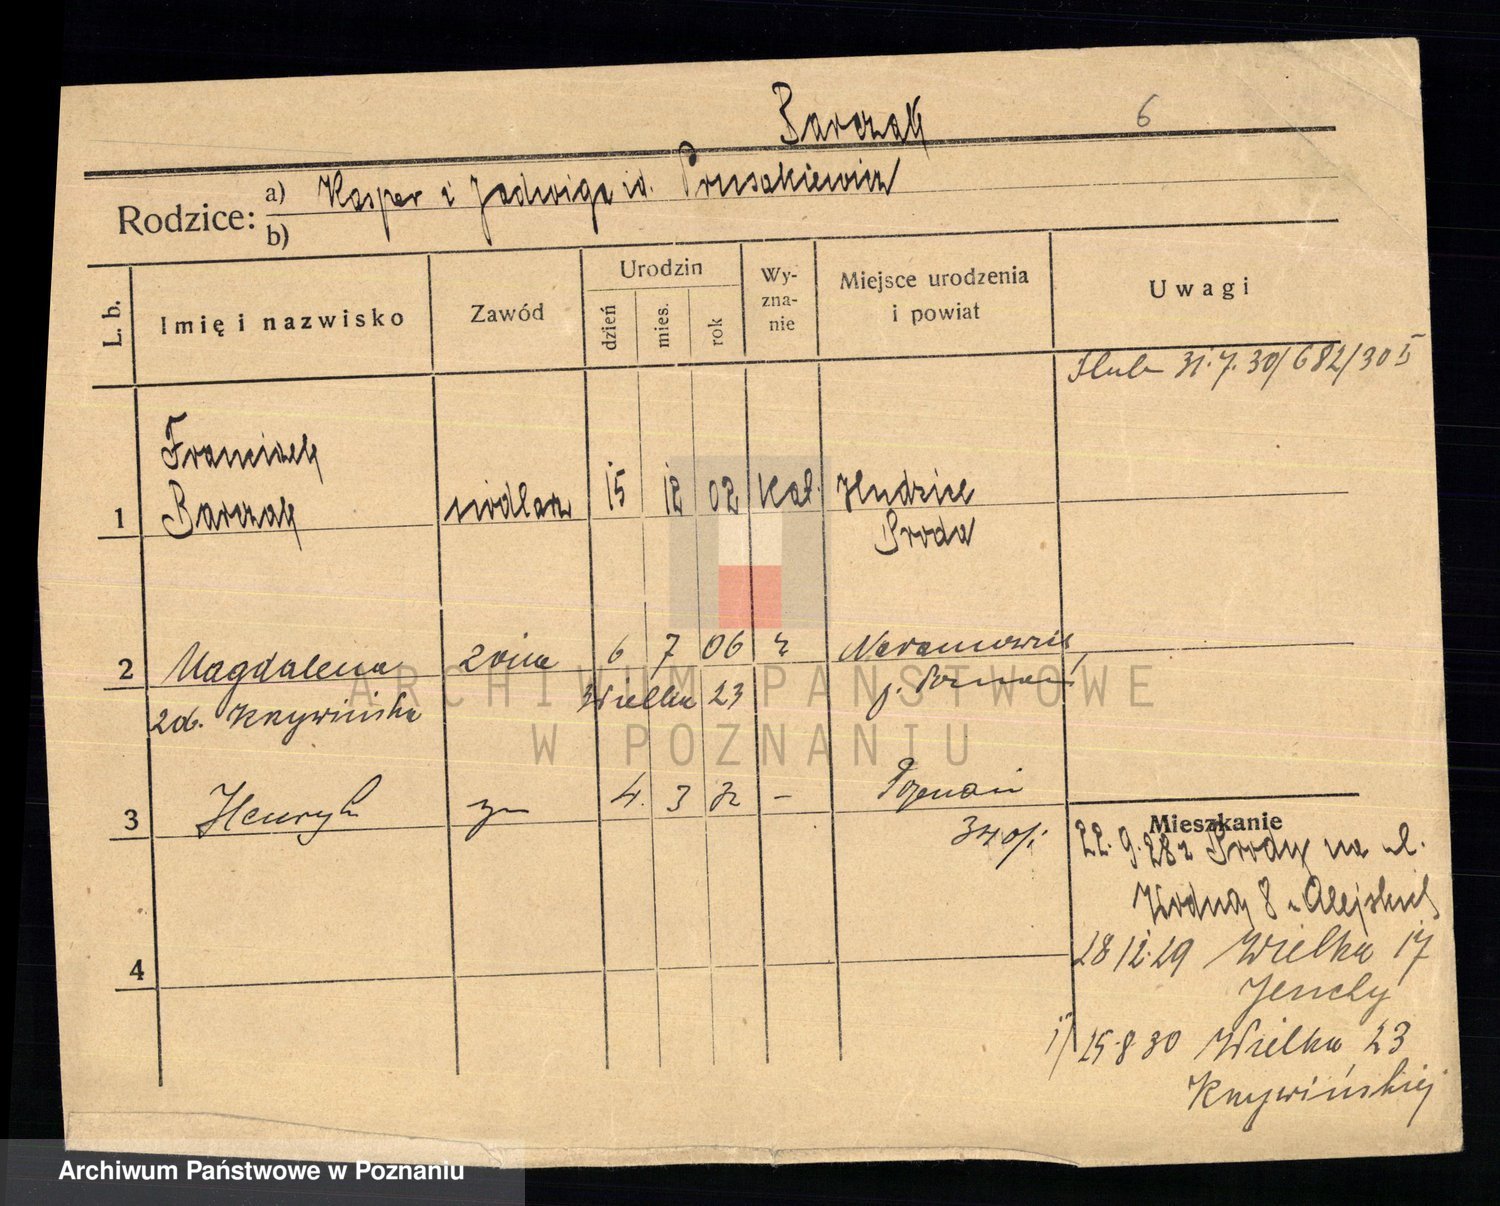 Barczak
6
Rodzice:
a) Kasper i Jadwiga u. Prusakiewicz
b)
L. b.
Imię i nazwisko
Zawód
Urodzin
dzień
mies.
rok
Wy-
zna-
nie
Miejsce urodzenia
i powiat
Uwagi
Ślub 31.7.30/682/30 II
Franciszek
1 Barczak siodlarz 15 12 02 kat.
Środa
2 Magdalena żona 6 7 06
zd. Krzywińska Wielka 23 p. Poznań
3 Henryk 4. 3 32 - Poznań
340/i
4
Mieszkanie
22.9.28 z Środy na ul.
Wodną 8
28 12.29 Wielka 17
15.8 30 Wielka 23
Krzywińskiej
ARCHIWUM PAŃSTWOWE
W POZNANIU
Archiwum Państwowe w Poznaniu